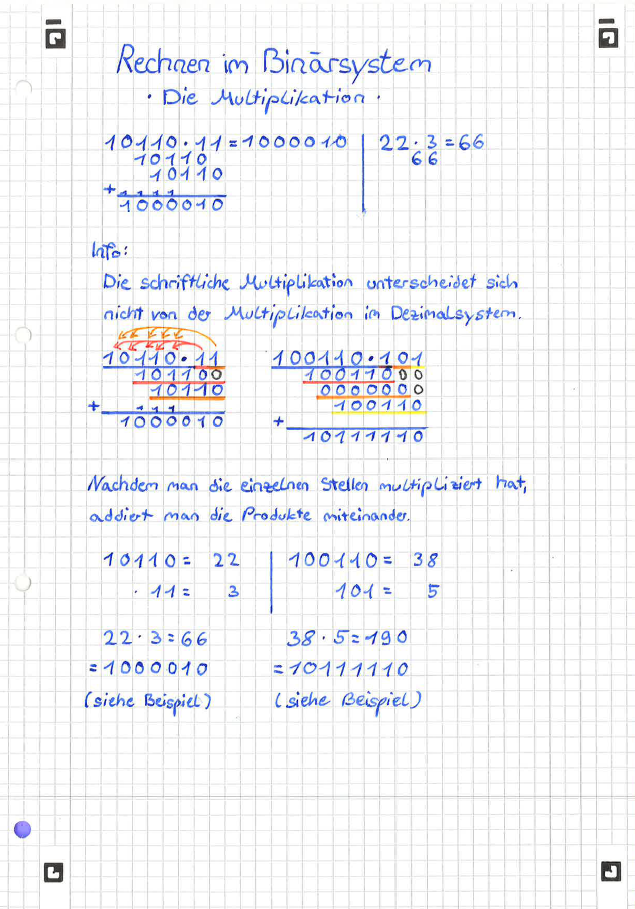 Rechnen im Binärsystem
· Die Multiplikation ·
10110·11=1000010
10110
10110
+ 1 1 1 1
1000010
22·3=66
66
Info:
Die schriftliche Multiplikation unterscheidet sich
nicht von der Multiplikation im Dezimalsystem.
10110·11
101100
10110
+ 1 1 1
1000010
100110·101
10011000
0000000
100110
+
10111110
Nachdem man die einzelnen Stellen multipliziert hat,
addiert man die Produkte miteinander.
10110= 22
· 11= 3
100110= 38
101= 5
22·3=66
=1000010
(siehe Beispiel)
38·5=190
=10111110
(siehe Beispiel)